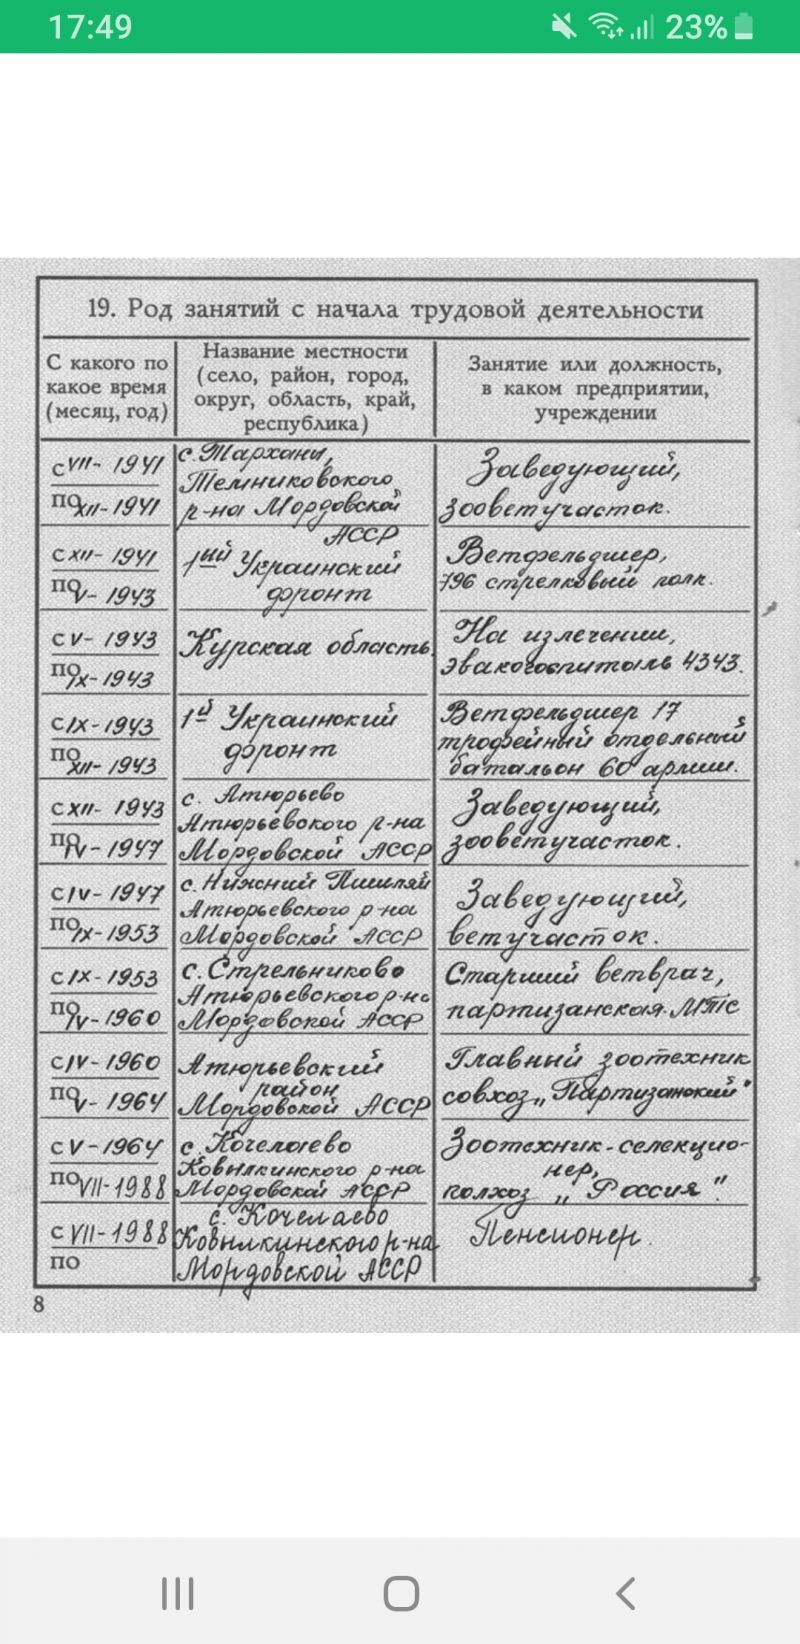 17:49
23%
19. Род занятий с начала трудовой деятельности
С какого по
какое время
(месяц, год)
Название местности
(село, район, город,
округ, область, край,
республика)
Занятие или должность,
в каком предприятии,
учреждении
с VII - 1941
по XII - 1941
с. Тархани,
Темниковского
р-на Мордовской
АССР
Заведующий,
зооветучасток.
с XII - 1941
по V - 1943
1ный Украинский
фронт
Ветфельдшер,
796 стрелковый полк.
с V - 1943
по IX - 1943
Курская область.
На излечении,
эвакогоспиталь 4343.
с IX - 1943
по XII - 1943
1й Украинский
фронт
Ветфельдшер 17
трофейный отдельный
батальон 60 армии.
с XII - 1943
по IV - 1947
с. Атюрьево
Атюрьевского р-на
Мордовской АССР
Заведующий,
зооветучасток.
с IV - 1947
по IX - 1953
с. Нижний Пишляй
Атюрьевского р-на
Мордовской АССР
Заведующий,
ветучасток.
с IX - 1953
по IV - 1960
с. Стрельниково
Атюрьевского р-на
Мордовской АССР
Старший ветврач,
партизанская МТС
с IV - 1960
по V - 1964
Атюрьевский
район
Мордовской АССР
Главный зоотехник
совхоз „Партизанский"
с V - 1964
по VII - 1988
с. Кочелаево
Ковылкинского р-на
Мордовской АССР
Зоотехник-селекцио-
нер,
колхоз „Россия".
с VII - 1988
по
с. Кочелаево
Ковылкинского р-на
Мордовской АССР
Пенсионер.
8